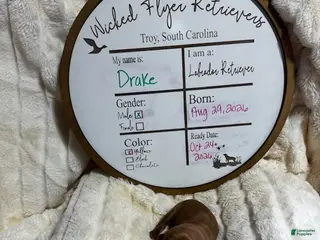 Wicked Flyer Retrievers
Troy, South Carolina
My name is:
Drake
I am a:
Labrador Retriever
Gender:
Male X
Female
Born:
Aug 29, 2026
Color:
X Yellow
Black
Chocolate
Ready Date:
Oct 24
2026
Lancaster
Puppies